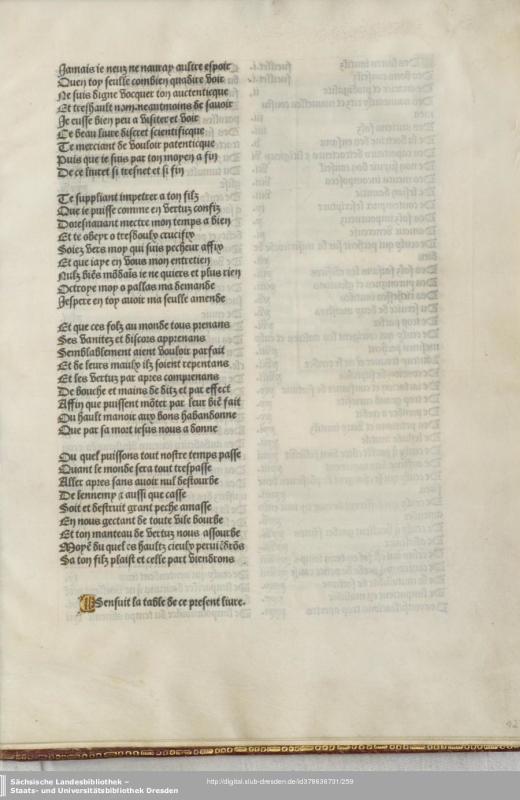 Jamais ie neuz ne nauray aultre espoir
Quen toy seulle combien quadire voir
Ne suis digne vocquer ton auctenticque
Et treshault nom. neantmoins de sauoir
Je eusse bien peu a visiter et voir
Ce beau liure discret scientificque
Te merciant de vouloir patenticque
Puis que ie suis par ton moyen a fin
De ce liuret si tresnet et si fin
Te suppliant impetrer a ton filz
Que ie puisse comme en vertuz confiz
Doresnauant mectre mon temps a bien
Et te obeyr o tresdoulx crucifix
Soiez vers moy qui suis pecheur affix
Et que iaye en vous mon entretien
Nulz biẽs mõdaĩs ie ne quiers et plus rien
Octroye moy o pallas ma demande
Jespere en toy auoir ma seulle amende
Et que ces folz au monde tous prenans
Ses vanitez et discors apprenans
Semblablement aient vouloir parfait
Et de leurs maulx ilz soient repentans
Et les vertuz par apres comprenans
De bouche et mains de ditz et par effect
Affin que puissent mõter par leur biẽ fait
Ou hault manoir aux bons habandonne
Que par sa mort iesus nous a donne
Ou quel puissons tout nostre temps passe
Quant le monde sera tout trespasse
Aller apres sans auoir nul destourbe
De lennemy ⁊ aussi que casse
Soit et destruit grant peche amasse
En nous gectant de toute vile bourbe
Et ton manteau de vertuz nous assourbe
Moyẽ du quel es haultz cieulx peruiẽdrõs
Sa ton filz plaist et celle part viendrons
Sensuit la table de ce present liure.
Sächsische Landesbibliothek –
Staats- und Universitätsbibliothek Dresden
http://digital.slub-dresden.de/id379636731/259